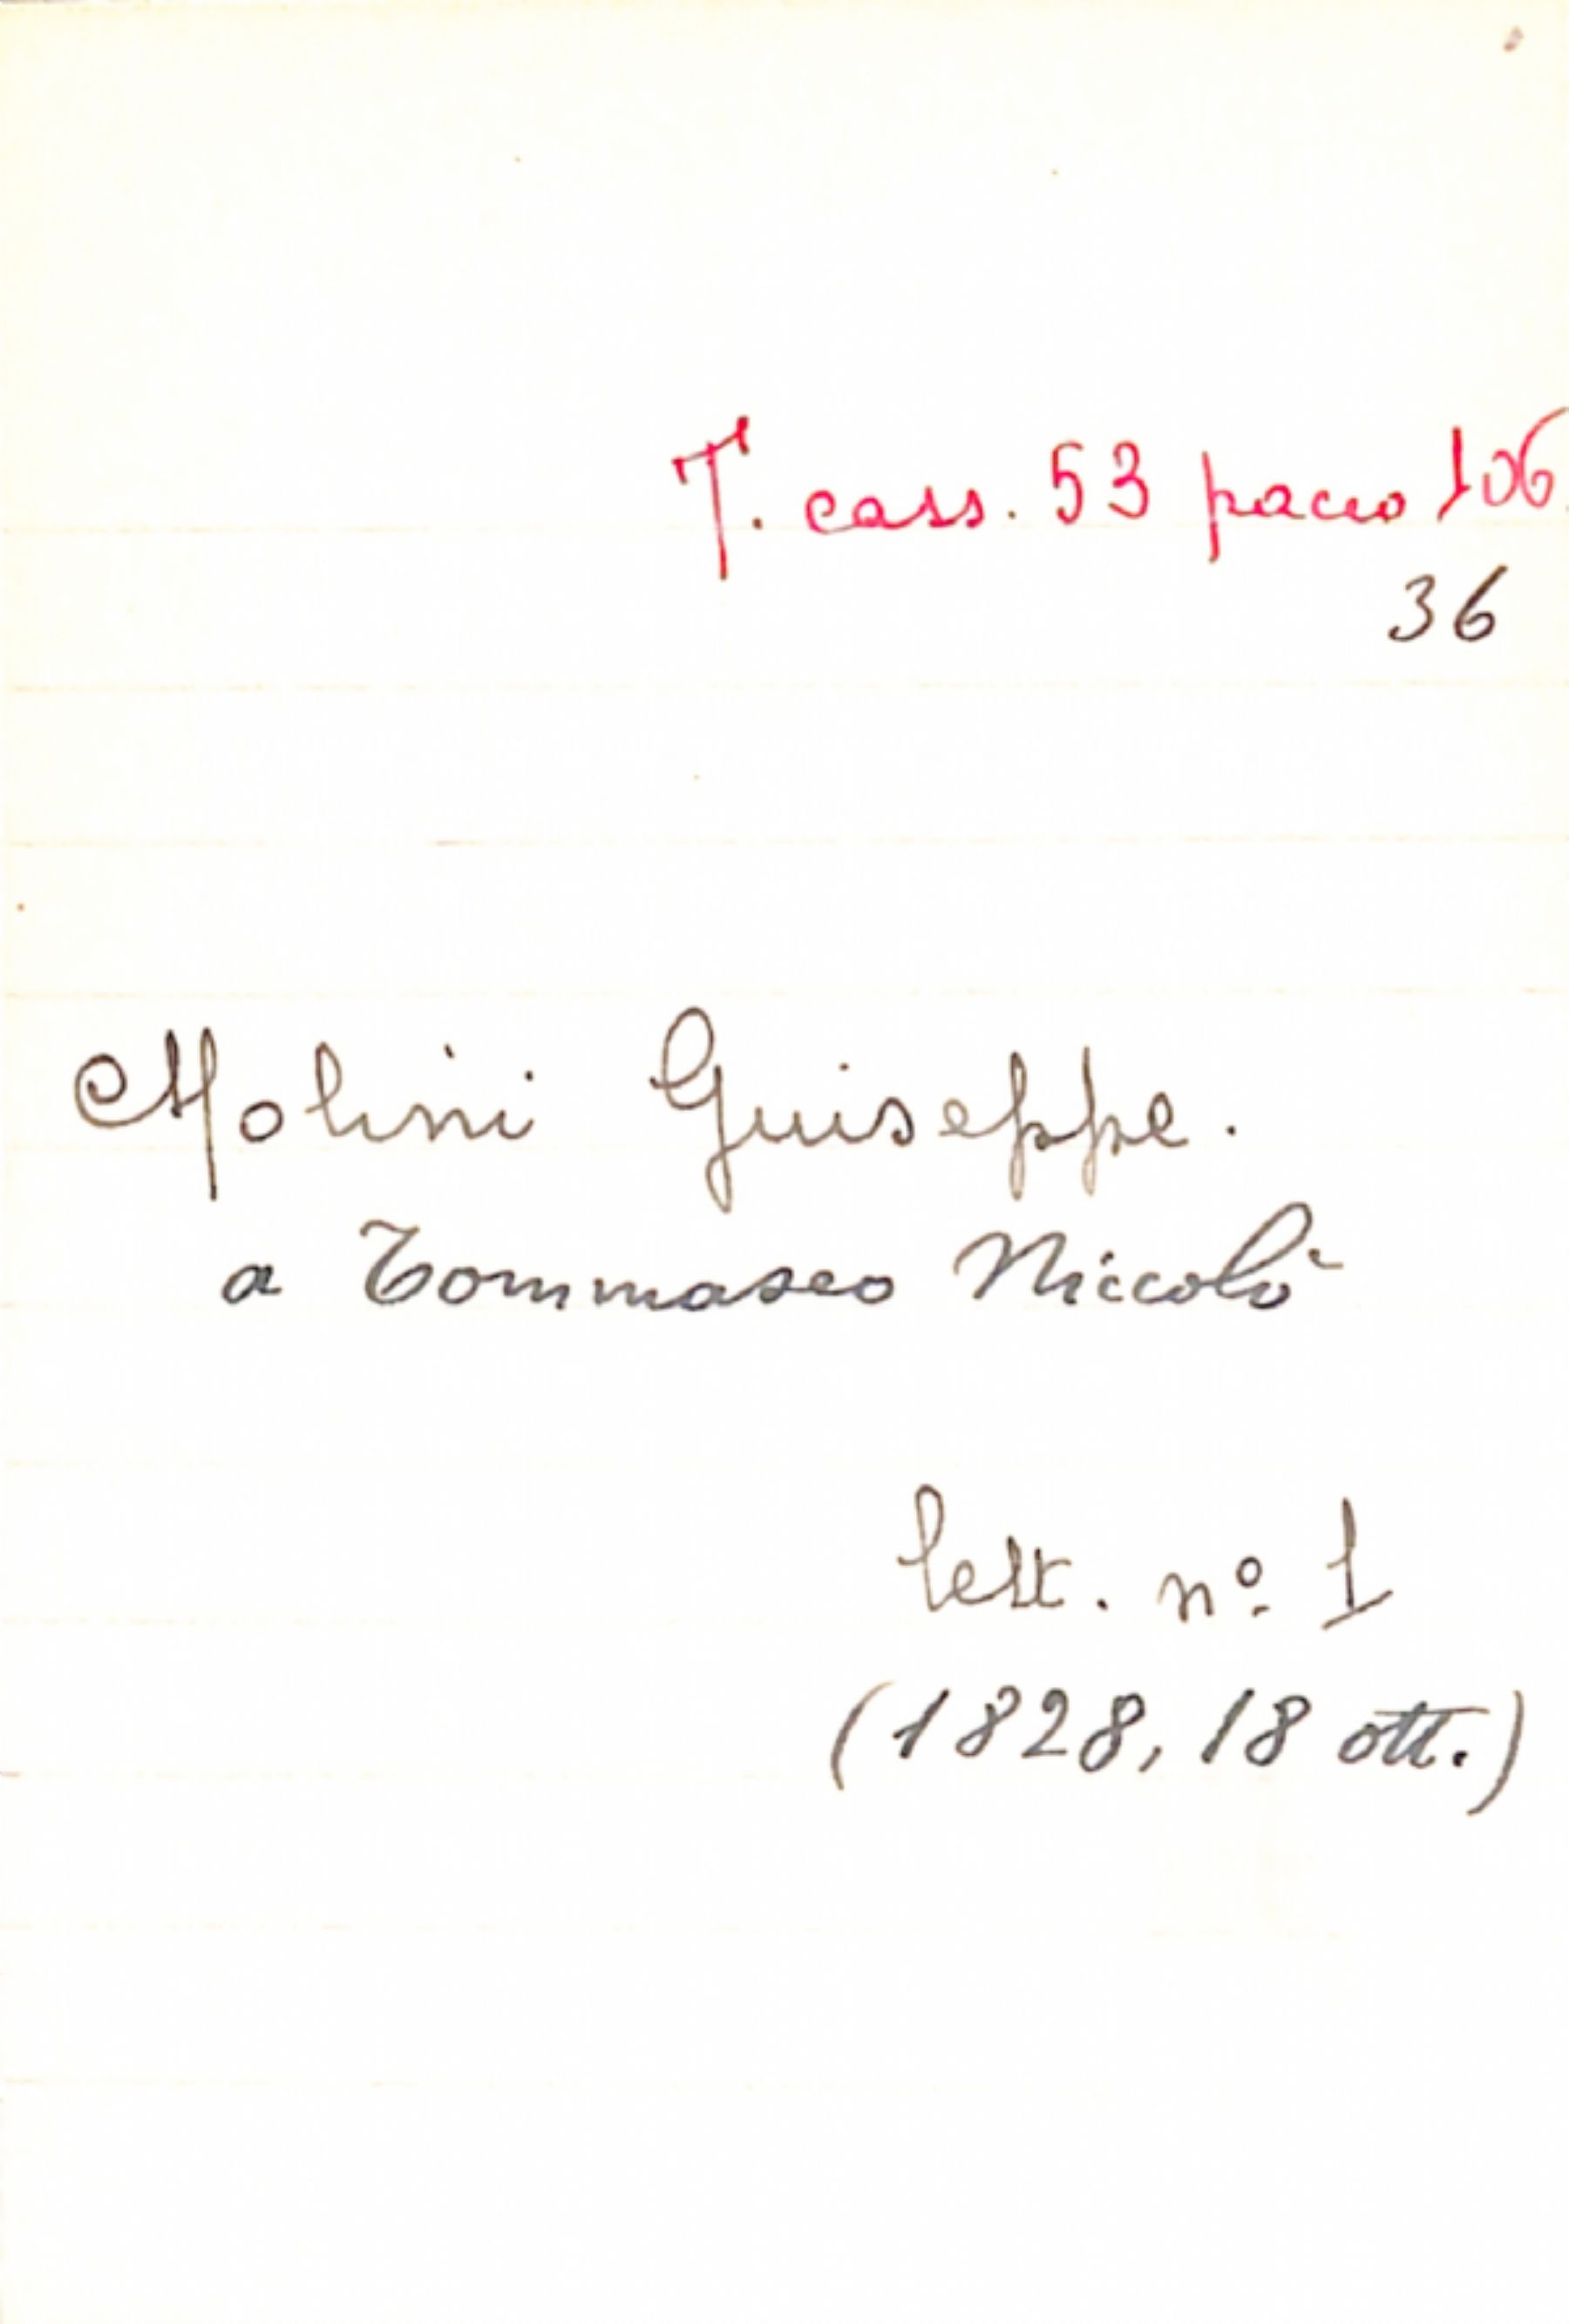 T. cass. 53 pacco 106.
36
Molini Giuseppe.
a Tommaseo Niccolò
lett. nº 1
(1828, 18 ott.)